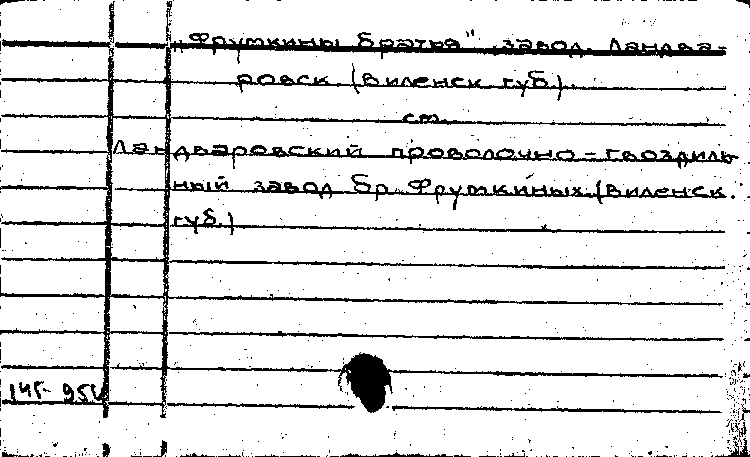 „Фрумкины Братья", завод. Ландва-
ровск. (Виленск. губ.).
см.
Ландваровский проволочно-гвоздиль-
ный завод бр. Фрумкиных (Виленск.
губ.)